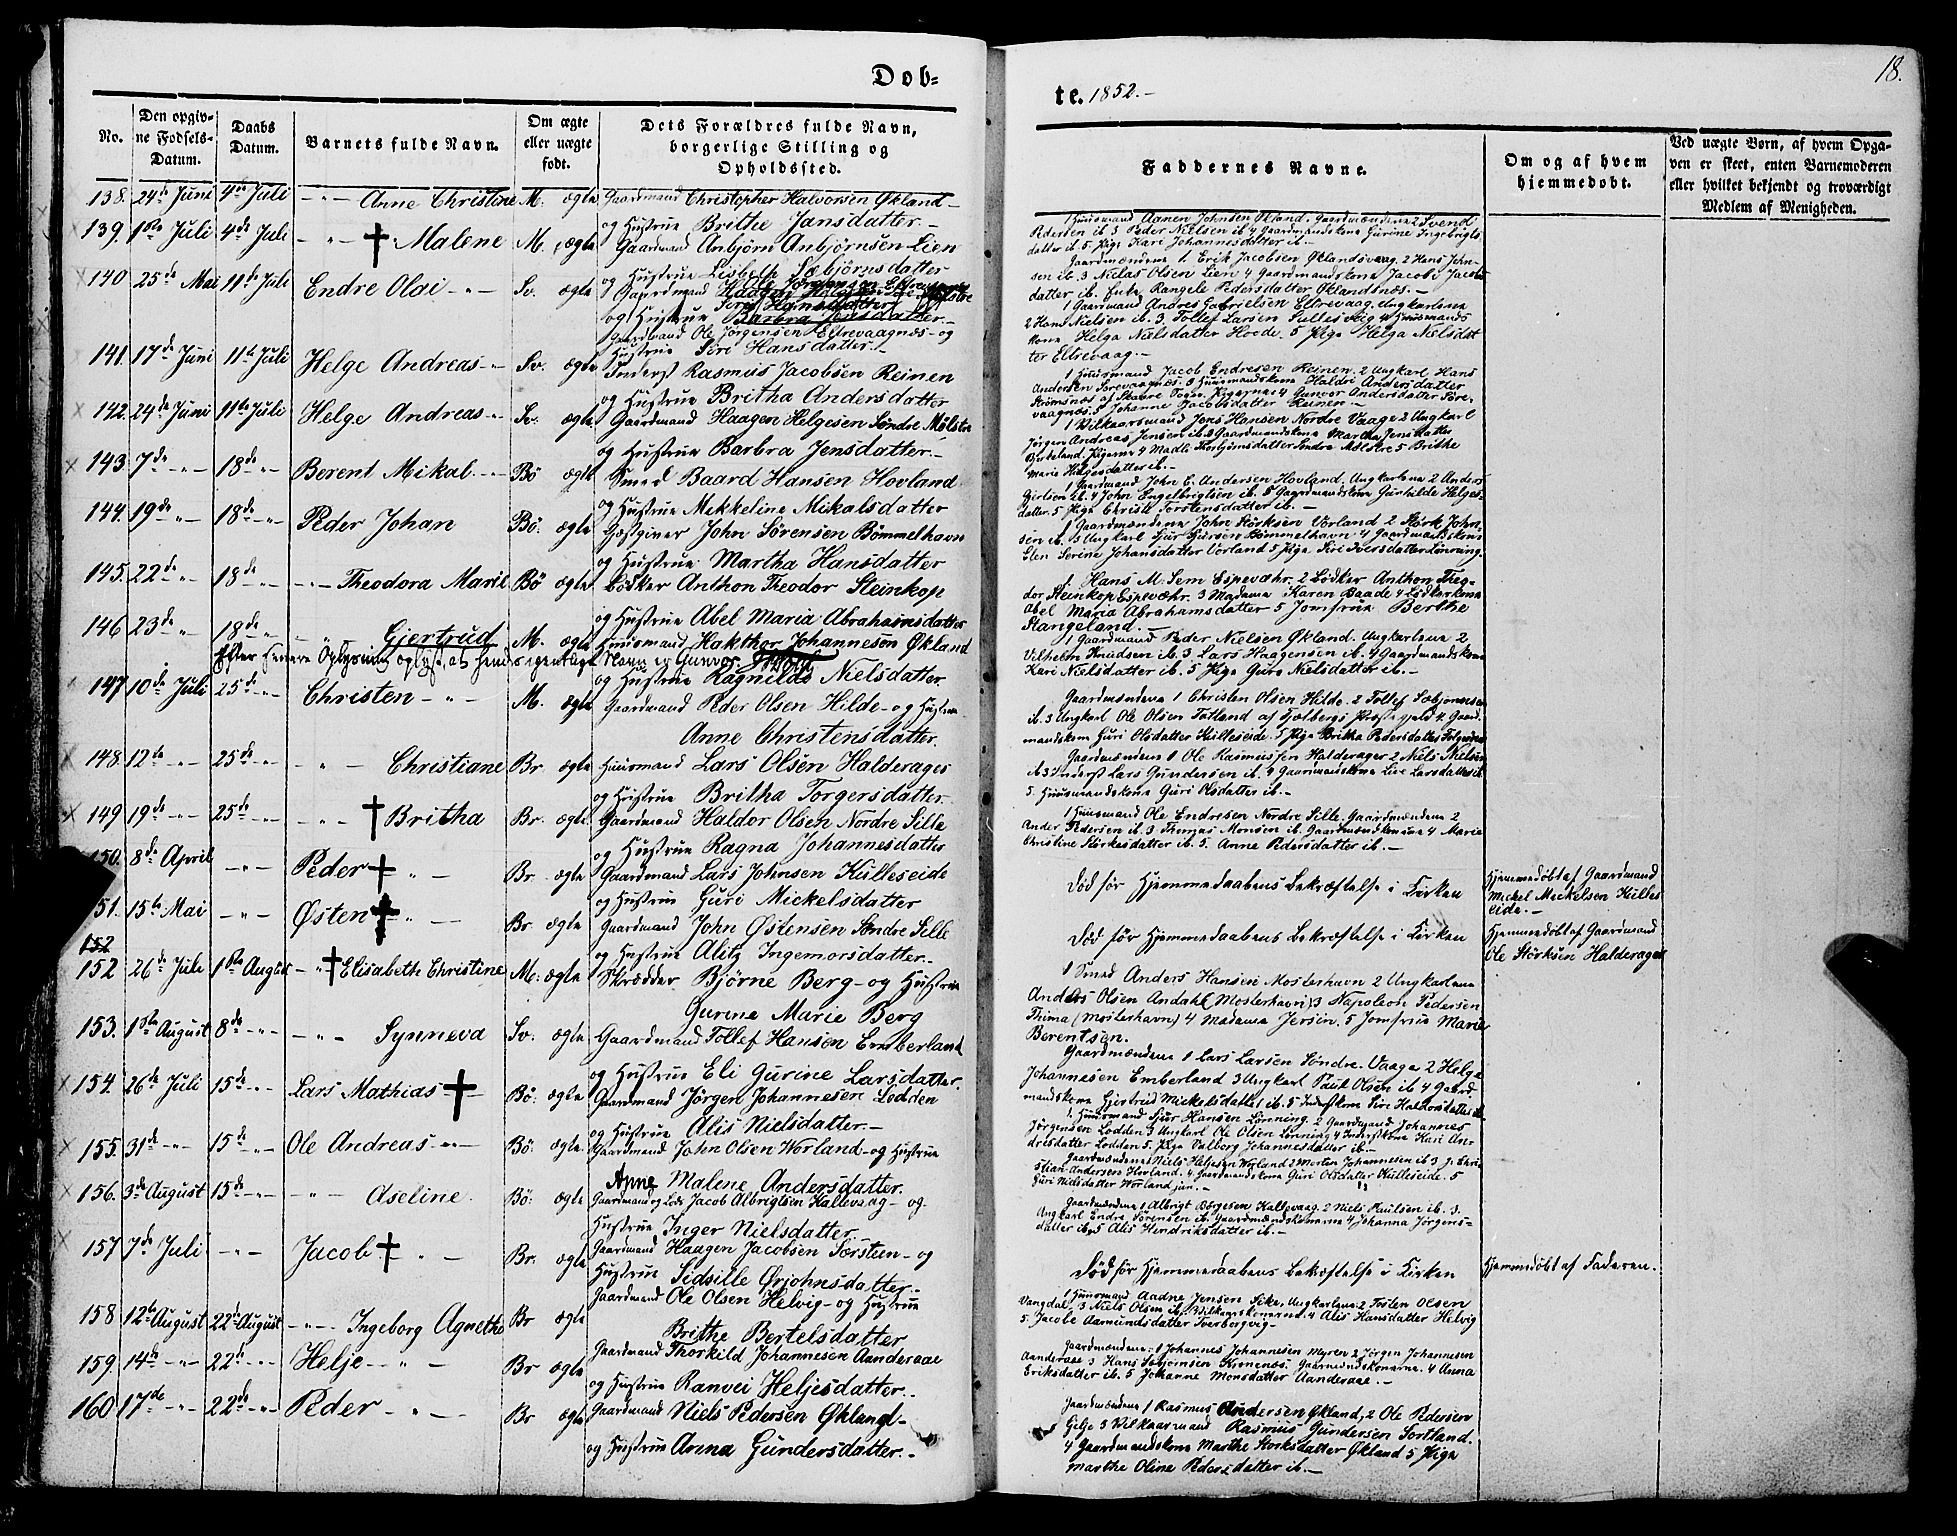 Døb-
No.
Den opgiv-
ne Fødsels-
Datum.
Daabs
Datum.
Barnets fulde Navn.
Om ægte
eller uægte
født.
Dets Forældres fulde Navn,
borgerlige Stilling og
Opholdssted.
138. 24de Juni 4de Juli -"- Anne Christine M. ægte Gaardmand Christopher Halvorsen Økland-
og Hustrue Brithe Jansdatter.-
139. 1ste Juli 4de Juli -"- † Malene M. ægte Gaardmand Anbjørn Anbjørnsen Lien
og Hustrue Lisbeth Sæbjørnsdatter
140 25de Mai 11te Juli Endre Olai -"- Sv. ægte Gaardmand
og Hustrue Barbra Jensdatter.-
Gaardmand Ole Jørgensen Eltrevaagnæs- og
Hustrue Siri Hansdatter.-
141. 17de Juni 11te Juli Helge Andreas -"- Sv. ægte Inderst Rasmus Jacobsen Reinen
og Hustrue Britha Andersdatter
142. 24de Juni 11te Juli Helge Andreas -"- Sv. ægte Gaardmand Haagen Helgesen Søndre Mølster
og Hustrue Barbra Jensdatter.-
143. 7de -"- 18de -"- Berent Mikal -"- Bø ægte Smed Baard Hansen Hovland
og Hustrue Mekkeline Mikalsdatter
144. 19de -"- 18de -"- Peder Johan Bø. ægte Gjestgiver John Sørensen Bømmelhavn
og Hustrue Martha Hansdatter
145. 22de -"- 18de -"- -"- Theodora Marie Bø ægte Bødker Anthon Theodor Steinkop
og Hustrue Abel Maria Abrahamsdatter
146 23de -"- 18de -"- -"- Gjertrud M. ægte Huusmand Hakthor Johannesen Økland
Efter senere Oplysning oplyst, at hendes egentlige Navn er Gunvor
og Hustrue Ragnilde Nielsdatter
147 10de Juli 25de -"- Christen -"- M. ægte Gaardmand Peder Olsen Hilde- og Hustrue
Anne Christensdatter.
148. 12te -"- 25de -"- -"- Christiane Br. ægte Huusmand Lars Olsen Halderager
og Hustrue Britha Torgersdatter.
149 19de -"- 25de -"- -"- † Britha Br. ægte Gaardmand Haldor Olsen Nordre Sille
og Hustrue Ragna Johannesdatter
150. 8de April -"- Peder † -"- Br. ægte Gaardmand Lars Johnsen Kulleseide
og Hustrue Guri Mickelsdatter
151. 15te Mai -"- Østen † -"- Br. ægte Gaardmand John Østensen Søndre Sille
og Hustrue Alitz Ingemorsdatter.-
152
152 26de Juli 1ste August -"- † Elisabeth Christine M. ægte Skrædder Bjørne Berg- og Hustrue
Gurine Marie Berg
153. 1ste August 8de -"- -"- Synneva Sv. ægte Gaardmand Tollef Hansen Emberland
og Hustrue Eli Gurine Larsdatter.
154. 26de Juli 15de -"- Lars Mathias † Bø. ægte Gaardmand Jørgen Johannesen Lodden
og Hustrue Alis Nielsdatter.-
155. 31de -"- 15de -"- Ole Andreas -"- Bø. ægte. Gaardmand John Olsen Worland- og Hustrue
Anne Malene Andersdatter.
156. 3de August 15de -"- -"- Aseline. Bø. ægte Gaardmand og Lods Jacob Albrigtsen Hallevaag- og-
Hustrue Inger Nielsdatter.
157 7de Juli -"- Jacob † -"- Br. ægte Gaardmand Haagen Jacobsen Særsteen- og
Hustrue Sidsille Ørjohnsdatter.-
158 12te August 22de August -"- Ingeborg Agnethe Br ægte Gaardmand Ole Olsen Helvig- og Hustrue
Brithe Bertelsdatter
159. 14te -"- 22de -"- Helje -"- Br ægte Gaardmand Thorkild Johannesen Aanderaae
og Hustrue Ranvei Heljesdatter.-
160 17de -"- 22de -"- Peder -"- Br ægte Gaardmand Niels Pedersen Økland-
og Hustrue Anna Gundersdatter.-
18.
te. 1852.-
Faddernes Navne.
Om og af hvem
hjemmedøbt.
Ved uægte Børn, af hvem Opga-
ven er skeet, enten Barnemoderen
eller hvilket bekjendt og troværdigt
Medlem af Menigheden.
1 Huusmand Aanen Johnsen Økland. Gaardmændene 2 Svend
Pedersen ib 3 Peder Nielsen ib 4 Gaardmandskone Gurine Ingebrigts
datter ib. 5 Pige Kari Johannesdatter ib.-
Gaardmændene 1 Erik Jacobsen Øklandsvaag. 2 Hans John-
sen ib. 3 Niclas Olsen Lien 4 Gaardmandskone Jacobi Jacobs
datter ib. Enke Rangele Pedersdatter Øklandsnæs.-
1 Gaardmand Andres Gabrielsen Eltrevaag. Ungkarlene
2 Hans Nielsen ib. 3 Tollef Larsen Sullesvig 4 Huusmands
kone Helga Nielsdatter Hovde. 5 Pige Helga Nielsdat
ter Eltrevaag.-
1 Huusmand Jacob Endresen Reinen. 2 Ungkarl Hans
Andersen Sørevaagnæs. 3 Huusmandskone Haldri Andersdatter
Strømsnæs af Skaare Sogn. Pigerne 4 Gunvor Andersdatter Søre-
vaagnæs. 5 Johanne Jacobsdatter Reinen.-
1 Vilkaarsmand Jens Hansen Nordre Vaage 2 Ungkarl
Jørgen Andreas Jensen ib. 3 Gaardmandskone Martha Jensdatter
Bydeland. Pigerne 4 Madli Thorbjørnsdatter Søndre Mølster 5 Brithe
Marie Helgesdatter ib.-
1 Gaardmand John E. Andersen Hovland. Ungkarlene 2 Anders
ib. 4 John Engelbrigtsen ib. 5 Gaardmandskone Gunhilde Helges-
datter. 5 Pige Christi Torstensdatter ib.-
1 Gaardmændene John Størksen Vorland 2 Størk John-
sen ib. 3 Ungkarl Sjur Sjursen Bømmelhavn 4 Gaardmandskone
Elen Serine Johansdatter Vorland 5 Pige Siri Iversdatter Lønning.
1. Hans M. Sem Espevæhr. 2 Bødker Anthon Theo-
dor Steinkop Espevæhr. 3 Madame Karen Baade 4 Bødkerkone
Abel Maria Abrahamsdatter 5 Jomfrue Berthe
Stangeland.-
1 Gaardmand Peder Nielsen Økland. Ungkarlene 2
Vilhelm Knudsen ib. 3 Lars Haagensen ib. 4 Gaardmandskone
Kari Nielsdatter ib. 5 Pige Guro Nielsdatter ib.-
Gaardmændene 1 Christen Olsen Hilde. 2 Tollef Sæbjørnsen
ib. 3 Ungkarl Ole Olsen Tatland af Fjelbergs Præstegjeld 4 Gaard-
mandskone Guri Olsdatter Kulleseide. 5 Pige Britha Pedersdatter
Gaardmændene 1 Ole Rasmussen Halderager 2 Niels Nielsen
ib. 3 Inderst Lars Gundersen ib. 4 Gaardmandskone Live Larsdatter ib
5. Huusmandskone Guri Olsdatter ib.-
1 Huusmand Ole Endresen Nordre Sille. Gaardmændene 2
Ander Pedersen ib. 3 Thomas Monsen ib. Gaardmandskonerne 4 Marie
Christine Størkesdatter ib. 5. Anne Pedersdatter ib.-
Død før Hjemmedaabens Bekræftelse i Kirken
Hjemmedøbt af Gaardmand
Mickel Mickelsen Kulles
eide.-
Død før Hjemmedaabens Bekræftelse i Kirken
Hjemmedøbt af Gaardmand
Ole Størksen Halderager
1 Smed Anders Hansen Mosterhavn 2 Ungkarlene
Anders Olsen Andahl (Mosterhavn) 3 Napoleon Pedersen
Thima (Mosterhavn) 4 Madame Jersin. 5 Jomfrue Marie
Berentsen.
Gaardmændene 1 Lars Larsen Søndre. Vaage 2 Helge
Johannesen Emberland 3 Ungkarl Paul Olsen ib 4 Gaard-
mandskone Gjertrud Mickelsdatter ib. 5 Inderstkone Siri Haldorsdatter ib
1. Huusmand Sjur Hansen Lønning. 2 Gaardmand Johannes
Jørgensen Lodden 3 Ungkarl Ole Olsen Lønning 4 Inderstkone Kari An-
dresdatter Lodden 5. Pige Valborg Johannesdatter ib.-
Gaardmændene 1 Niels Heljesen Worland 2 Morten Johannesen ib 3. J. Chri-
stian Andersen Hovland. 4 Gaardmandskone Guri Olsdatter Kulleseide. 5
Guri Nielsdatter Worland jun.-
Gaardmændene 1 Albrigt Børjesen Hallevaag. 2 Niels Paulsen ib. 3.
Ungkarl Endre Sørensen ib. Gaardmandskonerne 4 Johanna Jørgens-
datter ib. 5 Alis Hendriksdatter ib.-
Død før Hjemmedaabens Bekræftelse i Kirken
Hjemmedøbt af Faderen.
1 Huusmand Aadne Jensen Eike. Ungkarlene 2 Tosten Olsen
Vangdal 3 Niels Olsen ib. Vilkaarskonerne 4 Alis Hansdatter Helvig
5. Jacobe Aamundsdatter Tverborgvig-
Gaardmændene 1 Johannes Johannesen Myren 2 Jørgen Johannesen
Aanderaae 3 Hans Sæbjørnsen Kinenæs. Gaardmandskonerne. 4 Anna
Eriksdatter ib. 5 Johanne Monsdatter Aanderaae.-
Gaardmændene 1 Rasmus Andersen Økland, 2 Ole Pedersen
Gilje 3 Vilkaarmand Rasmus Gundersen Sortland.
4 Gaardmandskone Marthe Størksdatter Økland 5 Pige
Marthe Oline Pedersdatter ib.-